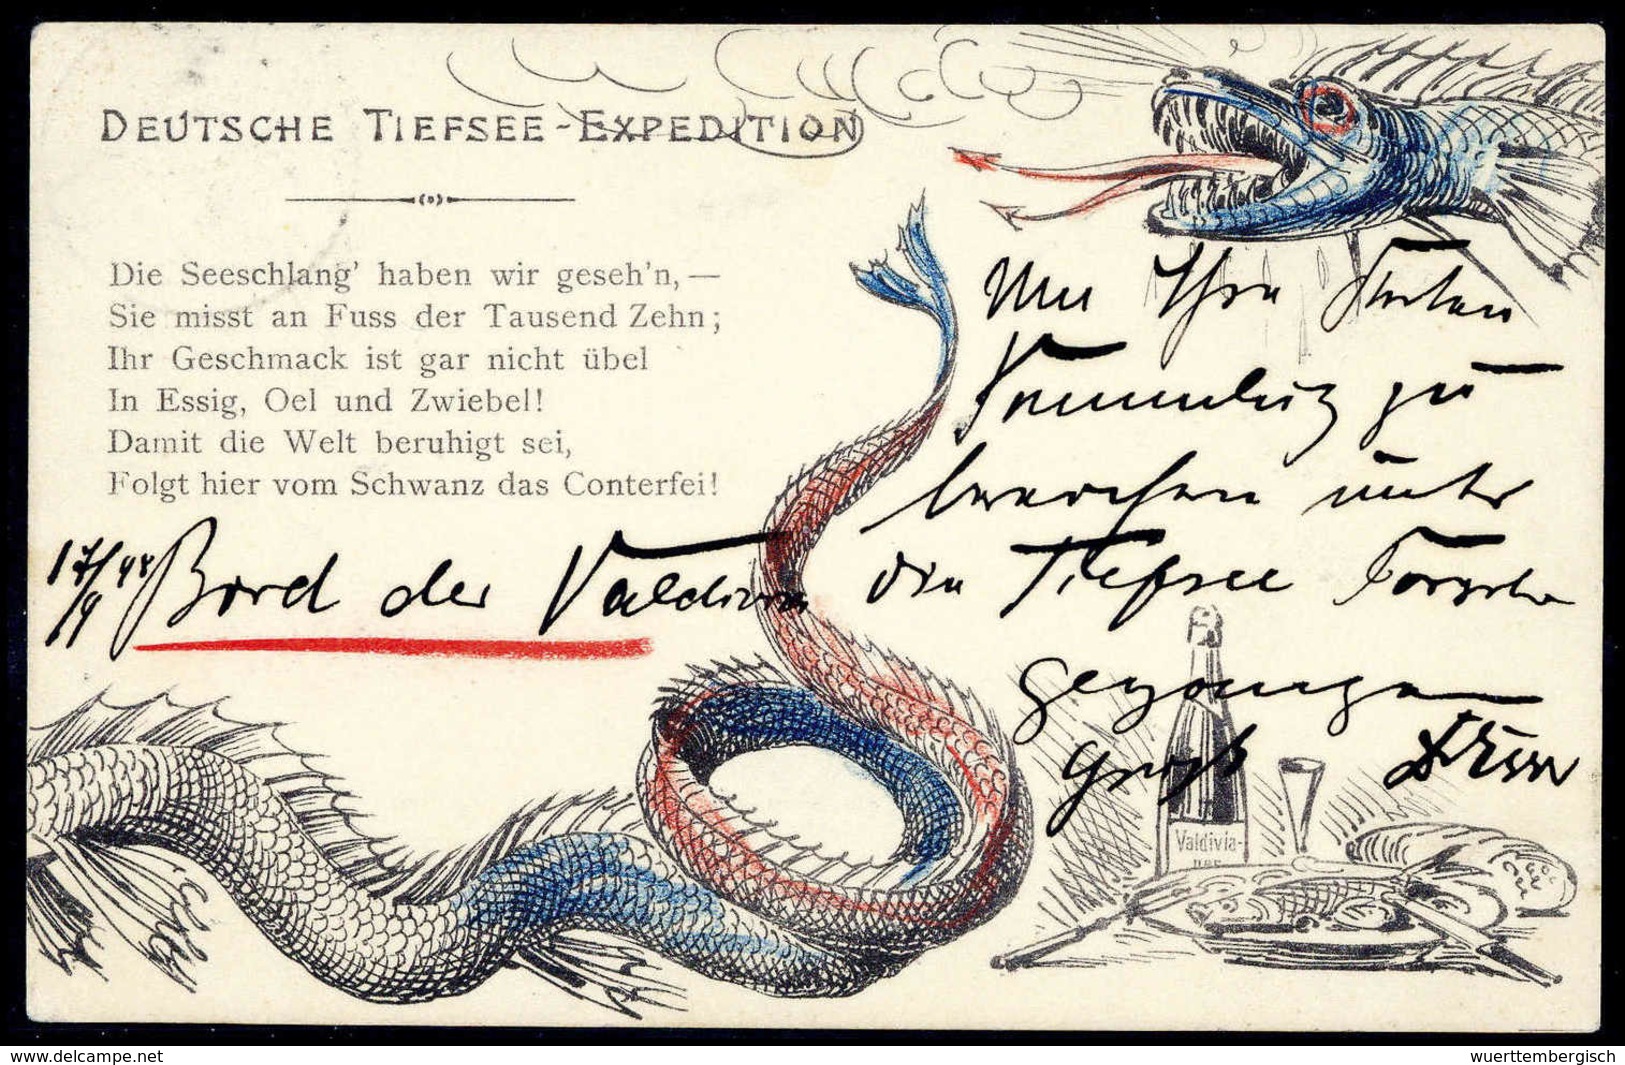 DEUTSCHE TIEFSEE-EXPEDITION
Die Seeschlang' haben wir geseh'n, —
Sie misst an Fuss der Tausend Zehn;
Ihr Geschmack ist gar nicht übel
In Essig, Oel und Zwiebel!
Damit die Welt beruhigt sei,
Folgt hier vom Schwanz das Conterfei!
17/9 98 Bord der Valdivia
Um Ihre Karten
Sammlung zu
bereichern unter
die Tiefsee Forscher
gegangen
Gruß
Valdivia-
www.delcampe.net
wuerttembergisch